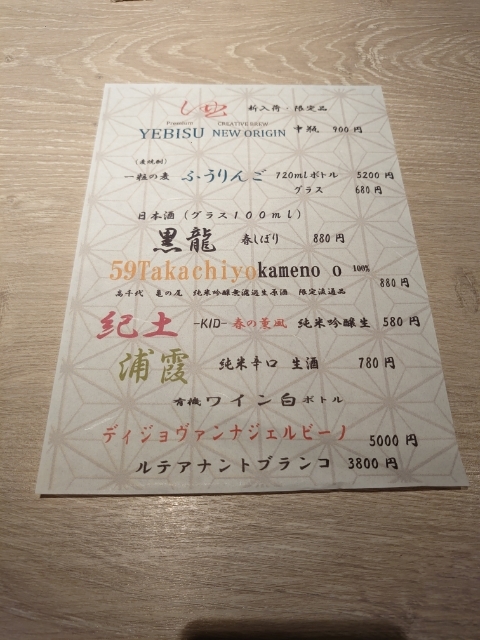 新入荷・限定品
Premium CREATIVE BREW
YEBISU NEW ORIGIN 中瓶 900円
(麦焼酎)
一粒の麦 ふうりんご 720mlボトル 5200円
グラス 680円
日本酒(グラス100ml)
黒龍 春しぼり 880円
59Takachiyokameno o 100%
880円
高千代 亀の尾 純米吟醸無濾過生原酒 限定流通品
紀土 -KID- 春の薫風 純米吟醸生 580円
浦霞 純米辛口 生酒 780円
有機ワイン白ボトル
ディジョヴァンナジェルビーノ 5000円
ルテアナントブランコ 3800円